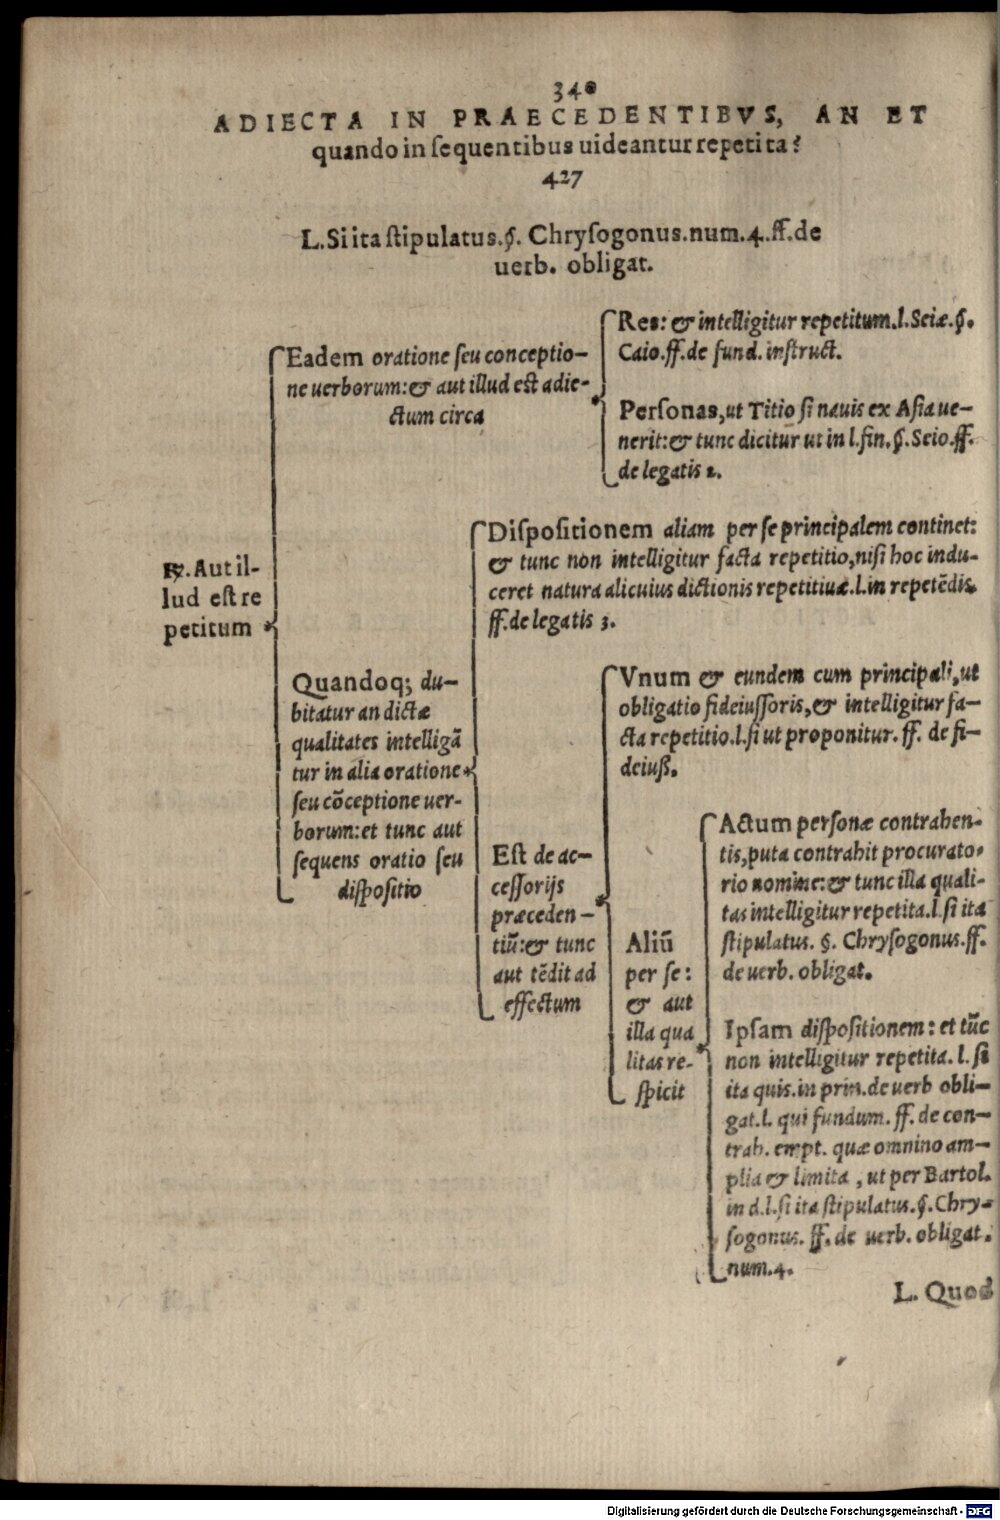 340
ADIECTA IN PRAECEDENTIBVS, AN ET
quando in ſequentibus uideantur repetita?
427
L. Si ita ſtipulatus. §. Chryſogonus. num. 4. ff. de
uerb. obligat.
℞. Aut il-
lud eſt re
petitum
Eadem oratione ſeu conceptio-
ne uerborum: & aut illud eſt adie-
ctum circa
Res: & intelligitur repetitum. l. Seiæ. §.
Caio. ff. de fund. inſtruct.
Perſonas, ut Titio ſi nauis ex Aſia ue-
nerit: & tunc dicitur ut in l. fin. §. Seio. ff.
de legatis 2.
Quandoq; du-
bitatur an dictæ
qualitates intelligã
tur in alia oratione
ſeu cõceptione uer-
borum: et tunc aut
ſequens oratio ſeu
diſpoſitio
Diſpoſitionem aliam per ſe principalem continet:
& tunc non intelligitur facta repetitio, niſi hoc indu-
ceret natura alicuius dictionis repetitiuæ. l. in repetẽdis.
ff. de legatis 3.
Eſt de ac-
ceſſorijs
præceden-
tiũ: & tunc
aut tẽdit ad
effectum
Vnum & eundem cum principali, ut
obligatio fideiuſſoris, & intelligitur fa-
cta repetitio. l. ſi ut proponitur. ff. de fi-
deiuß.
Aliũ
per ſe:
& aut
illa qua
litas re-
ſpicit
Actum perſonæ contrahen-
tis, puta contrahit procurato-
rio nomine: & tunc illa quali-
tas intelligitur repetita. l. ſi ita
ſtipulatus. §. Chryſogonus. ff.
de uerb. obligat.
Ipſam diſpoſitionem: et tũc
non intelligitur repetita. l. ſi
ita quis. in prin. de uerb obli-
gat. l. qui fundum. ff. de con-
trah. empt. quæ omnino am-
plia & limita, ut per Bartol.
in d. l. ſi ita ſtipulatus. §. Chry-
ſogonus. ff. de uerb. obligat.
num. 4.
L. Quod
Digitalisierung gefördert durch die Deutsche Forschungsgemeinschaft - DFG